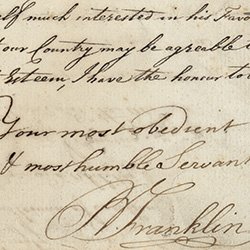 self much interested in his Fam
your Country may be agreable
Esteem, I have the honour to
Your most obedient
& most humble Servant
B Franklin